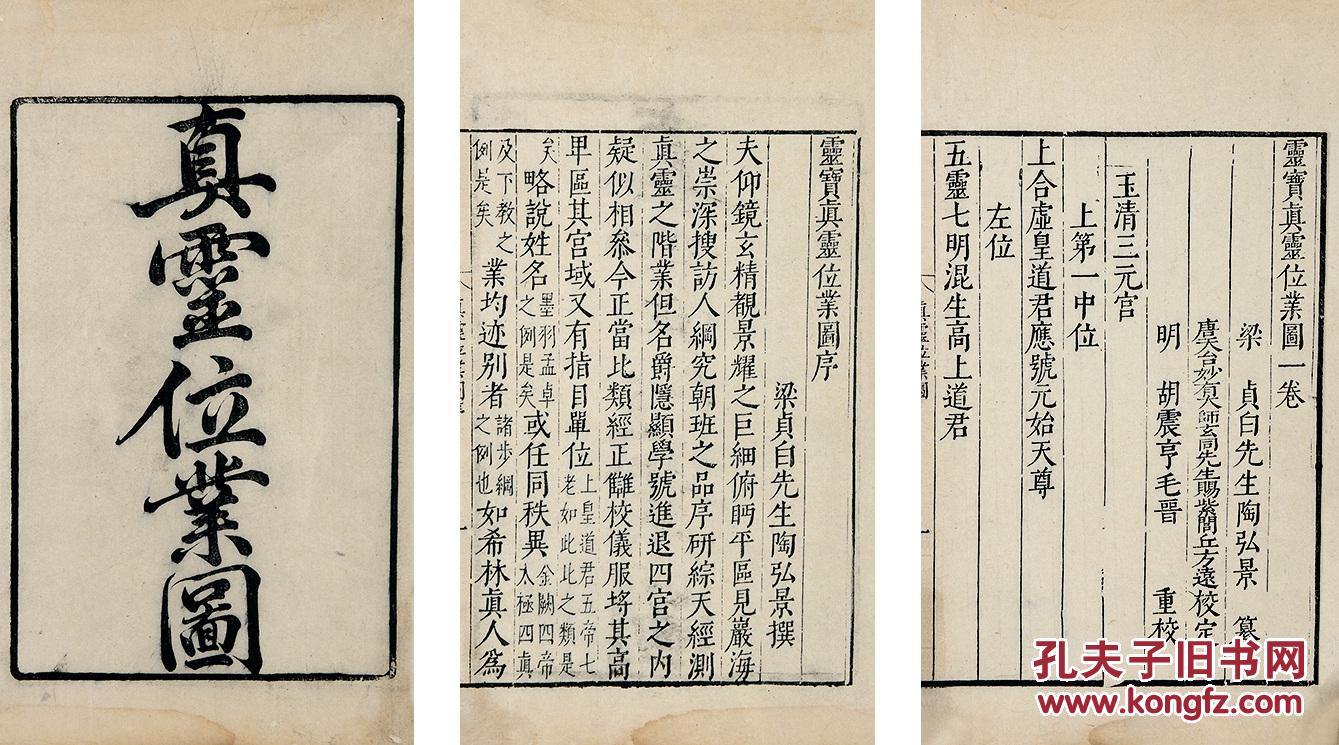 真靈位業圖
靈寶眞靈位業圖序
梁貞白先生陶弘景撰
夫仰鏡玄精覩景耀之巨細俯眄平區見巖海
之崇深搜訪人綱究朝班之品序研綜天經測
眞靈之階業但名爵隱顯學號進退四宫之内
疑似相叅今正當比類經正讎校儀服埒其高
卑區其宫域又有指目單位上皇道君五帝七老如此比之類是
矣略說姓名墨羽孟卓之例是矣或任同秩異金闕四帝太極四真
及下教之例是矣業均迹别者諸步綱之例也如希林眞人爲
靈寶眞靈位業圖一卷
梁 貞白先生陶弘景 纂
唐天台妙有大師玄同先生賜紫閭丘方遠校定
明 胡震亨毛晉 重校
玉清三元宫
上第一中位
上合虛皇道君應號元始天尊
左位
五靈七明混生高上道君
孔夫子旧书网
www.kongfz.com